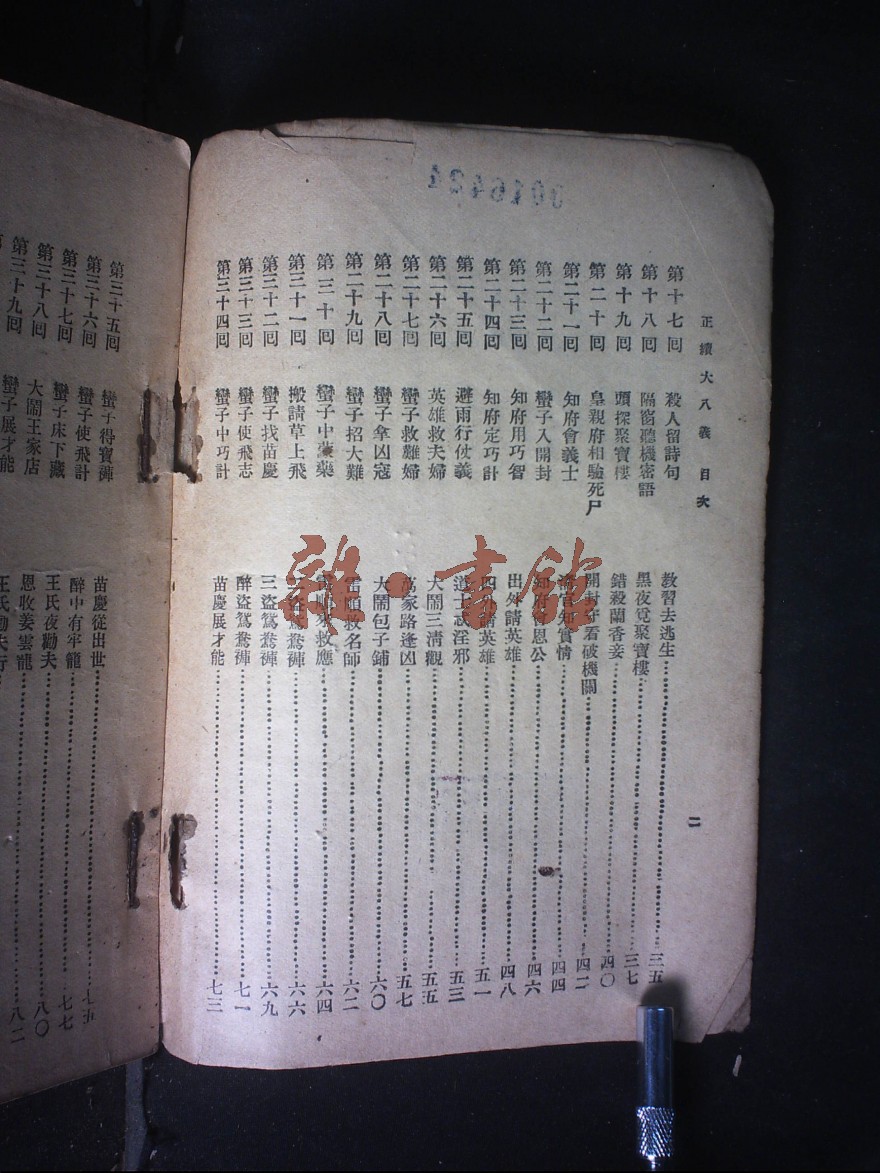 0016424
正續大八義 目次
二
第十七回 殺人留詩句 教習去逃生 三五
第十八回 隔窗聽機密語 黑夜覓聚寶樓 三七
第十九回 頭探聚寶樓 錯殺蘭香妾 四〇
第二十回 皇親府相驗死尸 開封府看破機關 四二
第二十一回 知府會義士 清官知實情 四四
第二十二回 蠻子入開封 知府 恩公 四六
第二十三回 知府用巧智 出外請英雄 四八
第二十四回 知府定巧計 四 請英雄 五一
第二十五回 避雨行仗義 道士 淫邪 五三
第二十六回 英雄救夫婦 大鬧三清觀 五五
第二十七回 蠻子救難婦 萬家路逢凶 五七
第二十八回 蠻子拿凶寇 大鬧包子鋪 六〇
第二十九回 蠻子招大難 雷順救名師 六二
第三十回 蠻子中蒙藥 雷順來救應 六四
第三十一回 搬請草上飛 二盜鴛鴦褲 六六
第三十二回 蠻子找苗慶 三盜鴛鴦褲 六九
第三十三回 蠻子使飛志 醉盜鴛鴦褲 七一
第三十四回 蠻子中巧計 苗慶展才能 七三
第三十五回 蠻子得寶褲 苗慶從出世 七五
第三十六回 蠻子使飛計 醉中有牢籠 七七
第三十七回 蠻子床下藏 王氏夜勸夫 八〇
第三十八回 大鬧王家店 恩收姜雲龍 八二
第三十九回 蠻子展才能 王氏勸夫行
雜·書館